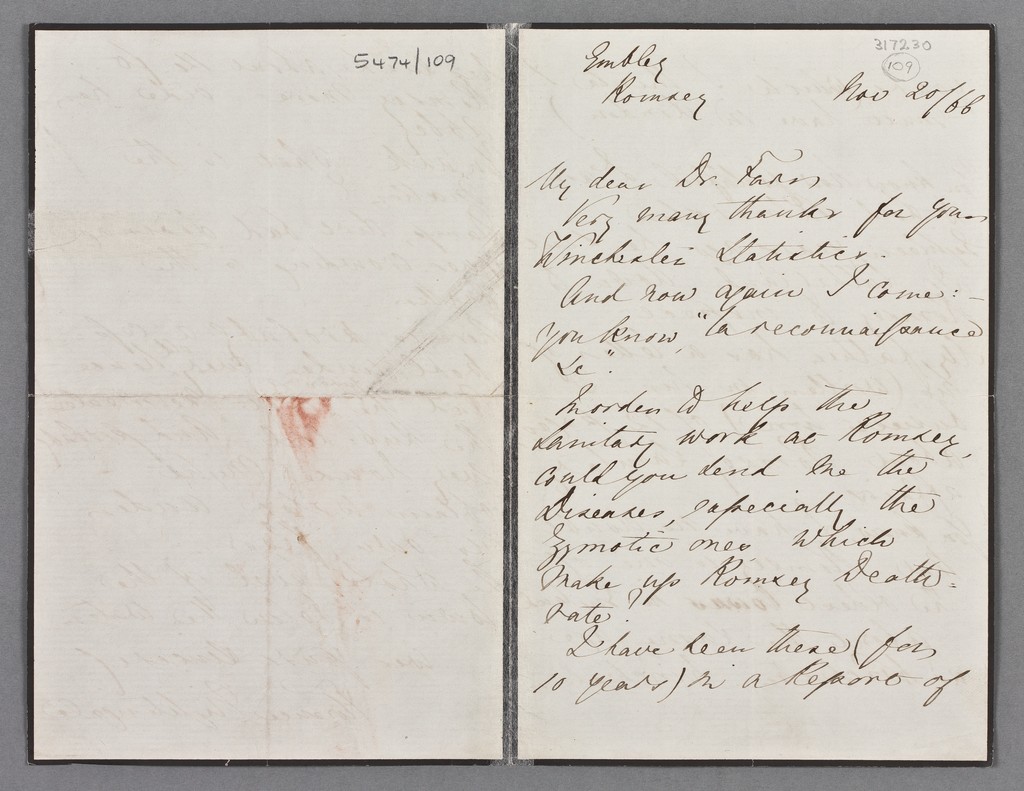 5474/109
317230
109
Embley
Romsey Nov 20/66
My dear Dr. Farr
Very many thanks for your
Winchester Statistics.
And now again I come: -
you know, "la reconnaissance
&c".
In order to help the
Sanitary work at Romsey,
could you send me the
Diseases, especially the
Zymotic ones, which
make up Romsey Death-
rate?
I have seen these (for
10 years) in a Report of